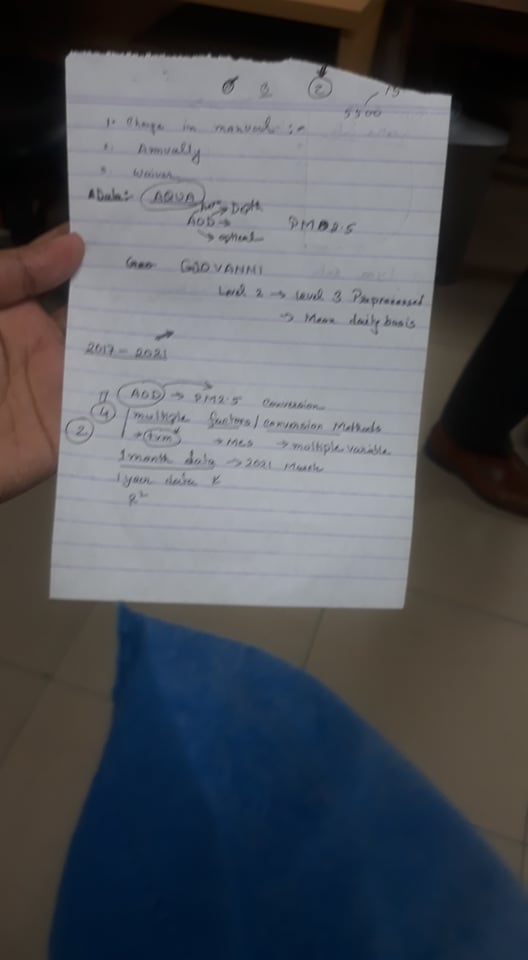 3 2 15
5500
1. Change in manual :-
2. Annually
3. Waiver
Data:- AQUA
→ Depth
AOD → PM 2.5
→ optical
GIOVANNI
Level 2 → Level 3 Preprocessed
→ Mean daily basis
2017 - 2021
AOD → PM2.5 Conversion
4 multiple factors/conversion Methods
2 → → multiple variable
1 month data → 2021 March
1 year data
R²